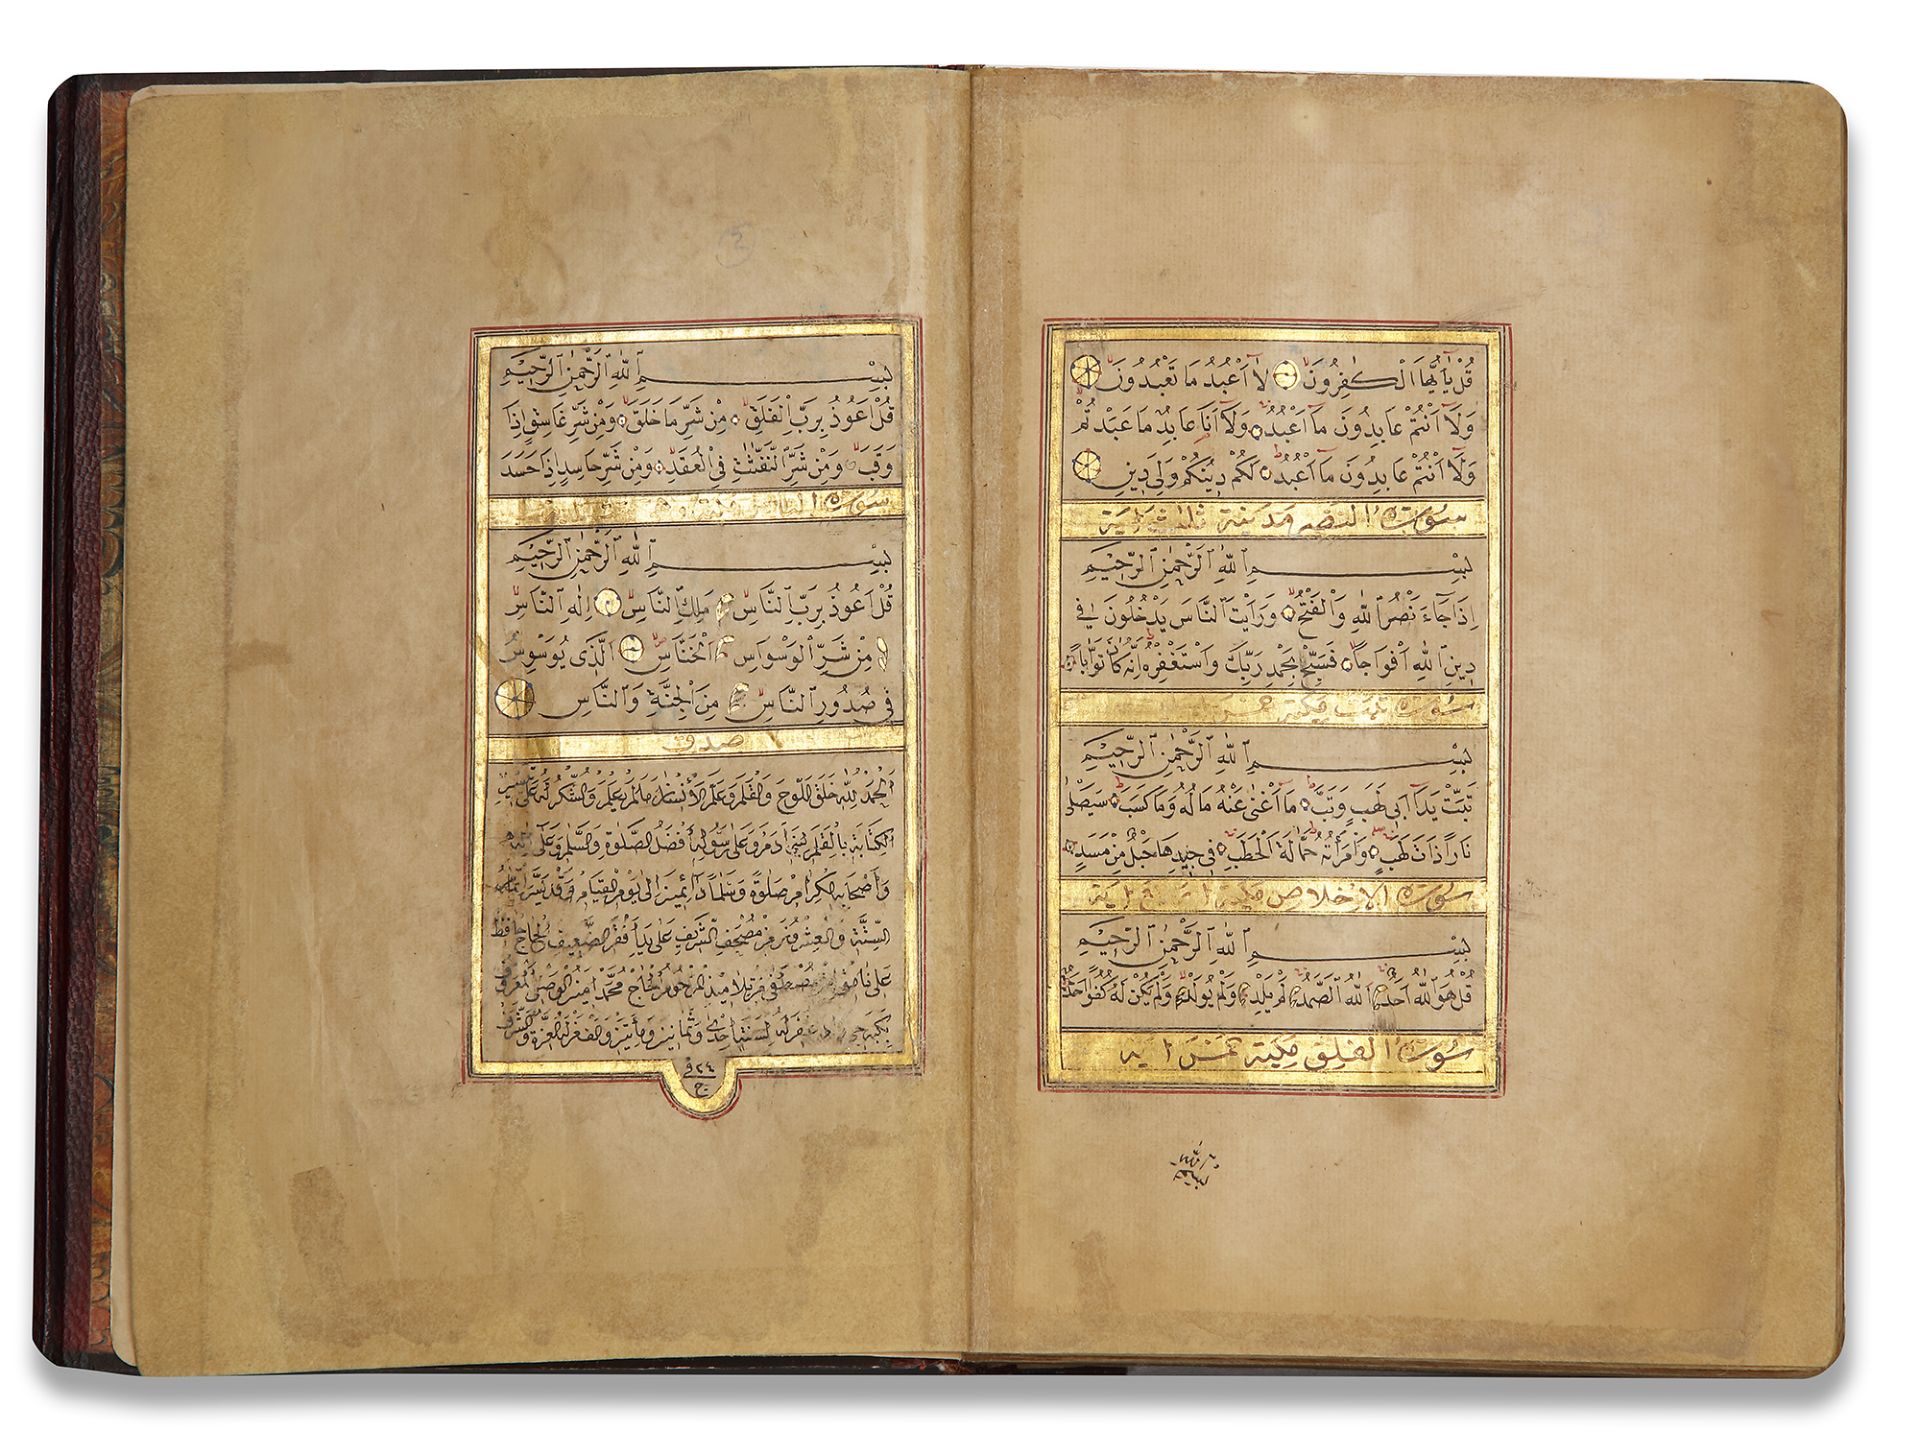 قُلْ يَآ اَيُّهَا الْكٰفِرُونَۙ لَٓا اَعْبُدُ مَا تَعْبُدُونَۙ
وَلَٓا اَنْتُمْ عَابِدُونَ مَٓا اَعْبُدُۚ وَلَٓا اَنَا عَابِدٌ مَا عَبَدْتُّمْۙ
وَلَٓا اَنْتُمْ عَابِدُونَ مَٓا اَعْبُدُۜ لَكُمْ دِينُكُمْ وَلِىَ دِينِ
سورة النصر مدنية ثلاث اية
بِسْمِ اللّٰهِ الرَّحْمٰنِ الرَّحِيمِ
اِذَا جَٓاءَ نَصْرُ اللّٰهِ وَالْفَتْحُۙ وَرَاَيْتَ النَّاسَ يَدْخُلُونَ فِى
دِينِ اللّٰهِ اَفْوَاجًاۙ فَسَبِّحْ بِحَمْدِ رَبِّكَ وَاسْتَغْفِرْهُ اِنَّهُ كَانَ تَوَّابًا
سورة تبت مكية خمس
بِسْمِ اللّٰهِ الرَّحْمٰنِ الرَّحِيمِ
تَبَّتْ يَدَٓا اَبِى لَهَبٍ وَتَبَّۜ مَٓا اَغْنٰى عَنْهُ مَالُهُ وَمَا كَسَبَۜ سَيَصْلٰى
نَارًا ذَاتَ لَهَبٍۚ وَامْرَاَتُهُ حَمَّالَةَ الْحَطَبِۚ فِى جِيدِهَا حَبْلٌ مِنْ مَسَدٍ
سورة الاخلاص مكية اربع اية
بِسْمِ اللّٰهِ الرَّحْمٰنِ الرَّحِيمِ
قُلْ هُوَ اللّٰهُ اَحَدٌۚ اَللّٰهُ الصَّمَدُۚ لَمْ يَلِدْ وَلَمْ يُولَدْۙ وَلَمْ يَكُنْ لَهُ كُفُوًا اَحَدٌ
سورة الفلق مكية خمس اية
بسم الله
بِسْمِ اللّٰهِ الرَّحْمٰنِ الرَّحِيمِ
قُلْ اَعُوذُ بِرَبِّ الْفَلَقِۙ مِنْ شَرِّ مَا خَلَقَۙ وَمِنْ شَرِّ غَاسِقٍ اِذَا
وَقَبَۙ وَمِنْ شَرِّ النَّفّٰثَاتِ فِى الْعُقَدِۙ وَمِنْ شَرِّ حَاسِدٍ اِذَا حَسَدَ
سورة الناس
بِسْمِ اللّٰهِ الرَّحْمٰنِ الرَّحِيمِ
قُلْ اَعُوذُ بِرَبِّ النَّاسِۙ مَلِكِ النَّاسِۙ اِلٰهِ النَّاسِۙ
مِنْ شَرِّ الْوَسْوَاسِ الْخَنَّاسِۙ اَلَّذِى يُوَسْوِسُ
فِى صُدُورِ النَّاسِۙ مِنَ الْجِنَّةِ وَالنَّاسِ
صدق
اَلْحَمْدُ لِلّٰهِ خَلَقَ اللَّوْحَ وَالْقَلَمَ وَعَلَّمَ الْاِنْسَانَ مَا لَمْ يَعْلَمْ وَالشُّكْرُ لَهُ عَلٰى
الْكِتَابَةِ بِالْقَلَمِ وَعَلٰى رَسُولِهِ اَفْضَلُ الصَّلٰوةِ وَالسَّلَامِ وَعَلٰى
وَاَصْحَابِهِ الْكِرَامِ صَلٰوةً وَسَلَامًا دَائِمَيْنِ اِلٰى يَوْمِ الْقِيَامِ وَقَدْ يَسَّرَ
السِّتَّةَ وَالْعِشْرُونَ مِنْ مُصْحَفِ الشَّرِيفِ عَلٰى يَدِ اَفْقَرِ الضَّعِيفِ الْحَاجّ حَافِظ
عَلِى مُصْطَفٰى مِنْ تَلَامِيذِ الْمَرْحُومِ الْحَاجّ مُحَمَّد اَمِين الْوَصْفِى الْمَعْرُوف
غُفِرَ لَهُ لِسَنَةِ اِحْدٰى وَثَمَانِينَ وَمِأَتَيْنِ وَاَلْفٍ مِنْ لَهُ الْعِزَّةُ وَالشَّرَفُ
٢٤ ف
ج